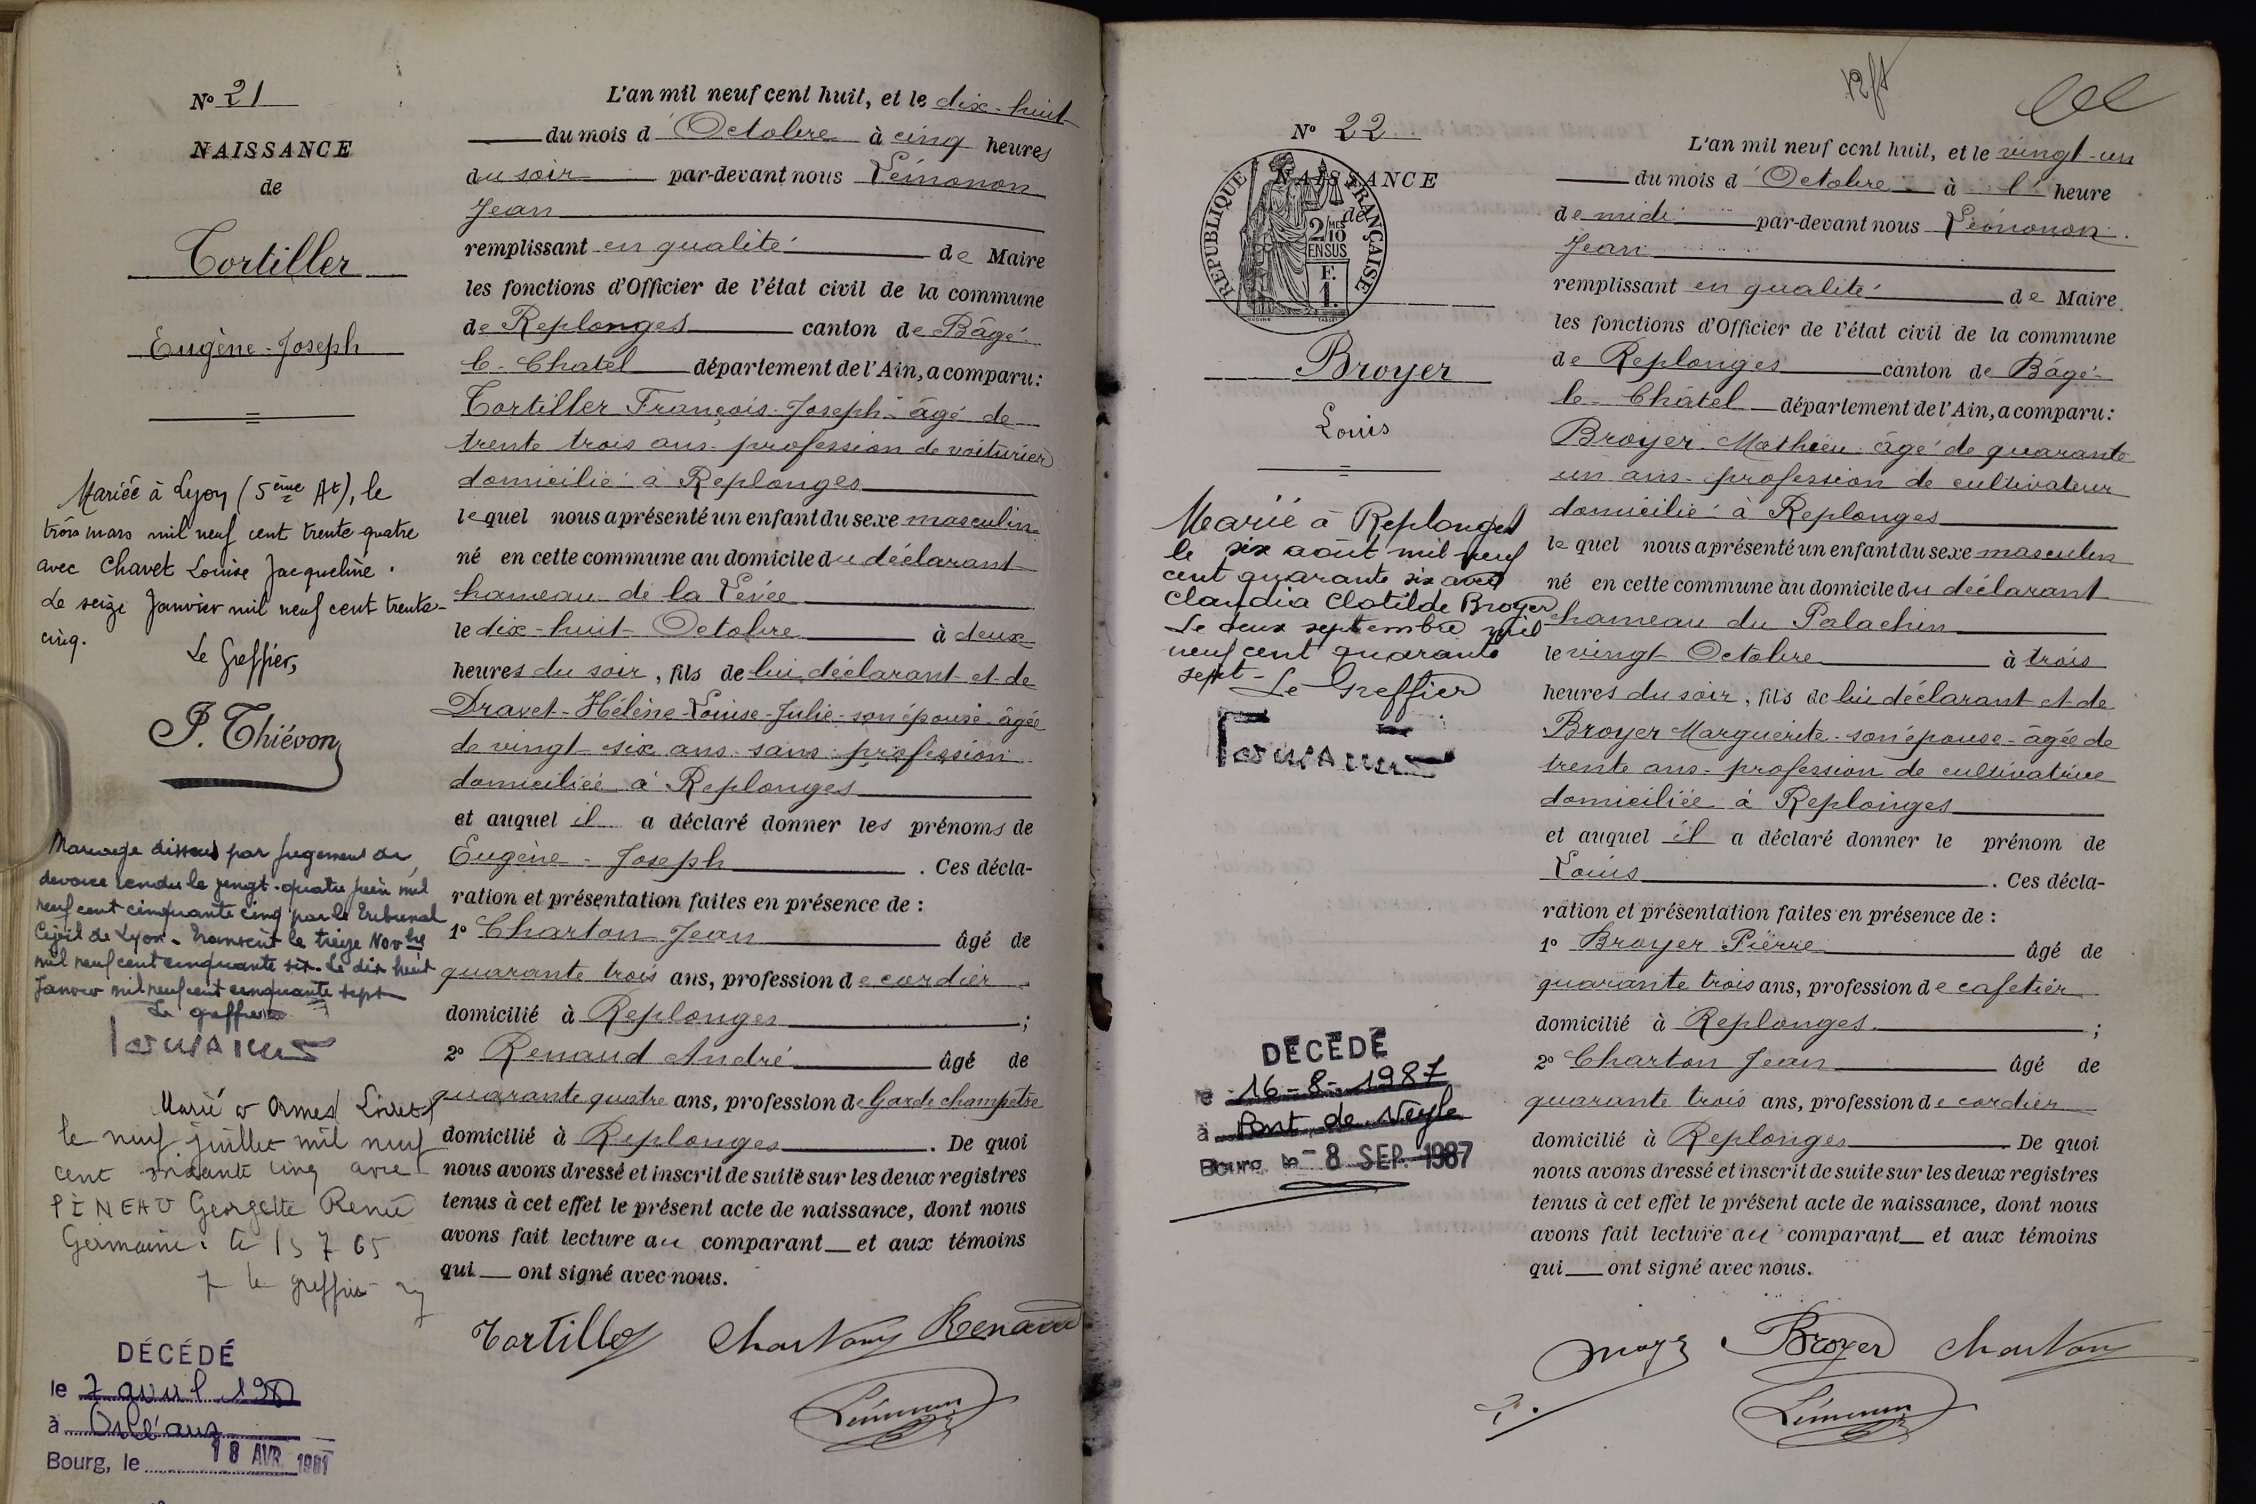 N° 21
NAISSANCE
de
Tortiller
Eugène-Joseph
Mariée à Lyon (5ème At), le
trois mars mil neuf cent trente quatre
avec Chavet Louise Jacqueline.
Le seize Janvier mil neuf cent trente-
cinq.
Le Greffier,
P. Thiévon
Mariage dissous par jugement de
divorce rendu le vingt-quatre juin mil
neuf cent cinquante cinq par le Tribunal
Civil de Lyon. Transcrit le treize Novbre
mil neuf cent cinquante six. Le dix huit
Janvier mil neuf cent cinquante sept
Le greffier
Marié à Ormes Loiret
le neuf juillet mil neuf
cent soixante cinq avec
PINEAU Georgette Renée
Germaine. Le 15 7 65
le greffier
DÉCÉDÉ
le 7 avril
à Orléans
Bourg, le 18 AVR. 1981
L'an mil neuf cent huit, et le dix-huit
du mois d'Octobre à cinq heures
du soir par-devant nous Léinonon
Jean
remplissant en qualité de Maire
les fonctions d'Officier de l'état civil de la commune
de Replonges canton de Bâgé
le-Chatel département de l'Ain, a comparu:
Tortiller François-Joseph âgé de
trente trois ans profession de voiturier
domicilié à Replonges
lequel nous a présenté un enfant du sexe masculin
né en cette commune au domicile du déclarant
hameau de la Levée
le dix-huit Octobre à deux
heures du soir, fils de lui déclarant et de
Dravet-Hélène-Louise-Julie son épouse âgée
de vingt-six ans sans profession
domiciliée à Replonges
et auquel il a déclaré donner les prénoms de
Eugène-Joseph. Ces décla-
ration et présentation faites en présence de :
1° Charton Jean âgé de
quarante trois ans, profession de cordier
domicilié à Replonges ;
2° Renaud André âgé de
quarante quatre ans, profession de Garde champêtre
domicilié à Replonges. De quoi
nous avons dressé et inscrit de suite sur les deux registres
tenus à cet effet le présent acte de naissance, dont nous
avons fait lecture au comparant et aux témoins
qui ont signé avec nous.
Tortiller Charton Renaud
N° 22
NAISSANCE
de
RÉPUBLIQUE FRANÇAISE
2/10 MES
EN SUS
F.
1.
Broyer
Louis
Marié à Replonges
le six août mil neuf
cent quarante six avec
Claudia Clotilde Broyer
Le deux septembre mil
neuf cent quarante
sept-
Le Greffier
DÉCÉDÉ
le 16-8-1987
à Pont de Veyle
Bourg, le - 8 SEP. 1987
L'an mil neuf cent huit, et le vingt-un
du mois d'Octobre à l' heure
de midi par-devant nous Léinonon
Jean
remplissant en qualité de Maire
les fonctions d'Officier de l'état civil de la commune
de Replonges canton de Bâgé-
le-Châtel département de l'Ain, a comparu:
Broyer Mathieu âgé de quarante
un ans profession de cultivateur
domicilié à Replonges
lequel nous a présenté un enfant du sexe masculin
né en cette commune au domicile du déclarant
hameau du Palachin
le vingt Octobre à trois
heures du soir, fils de lui déclarant et de
Broyer Marguerite son épouse âgée de
trente ans profession de cultivatrice
domiciliée à Replonges
et auquel il a déclaré donner le prénom de
Louis. Ces décla-
ration et présentation faites en présence de :
1° Broyer Pierre âgé de
quarante trois ans, profession de cafetier
domicilié à Replonges ;
2° Charton Jean âgé de
quarante trois ans, profession de cordier
domicilié à Replonges De quoi
nous avons dressé et inscrit de suite sur les deux registres
tenus à cet effet le présent acte de naissance, dont nous
avons fait lecture au comparant et aux témoins
qui ont signé avec nous.
Broyer Charton